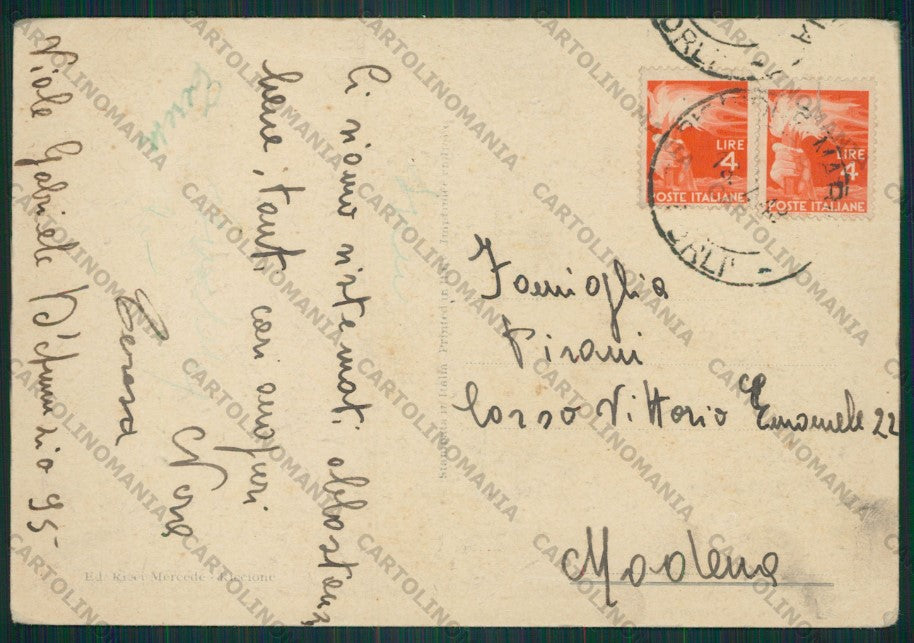 Ci siamo sistemati abbastanza
bene, tanti cari auguri
Nora
Teresa
Viale Gabriele D'Annunzio 95
Famiglia
Pirani
Corso Vittorio Emanuele 22
Modena
LIRE
4
POSTE ITALIANE
LIRE
4
POSTE ITALIANE
Stampata in Italia Printed in
Ed. Mercede - Riccione
CARTOLINOMANIA